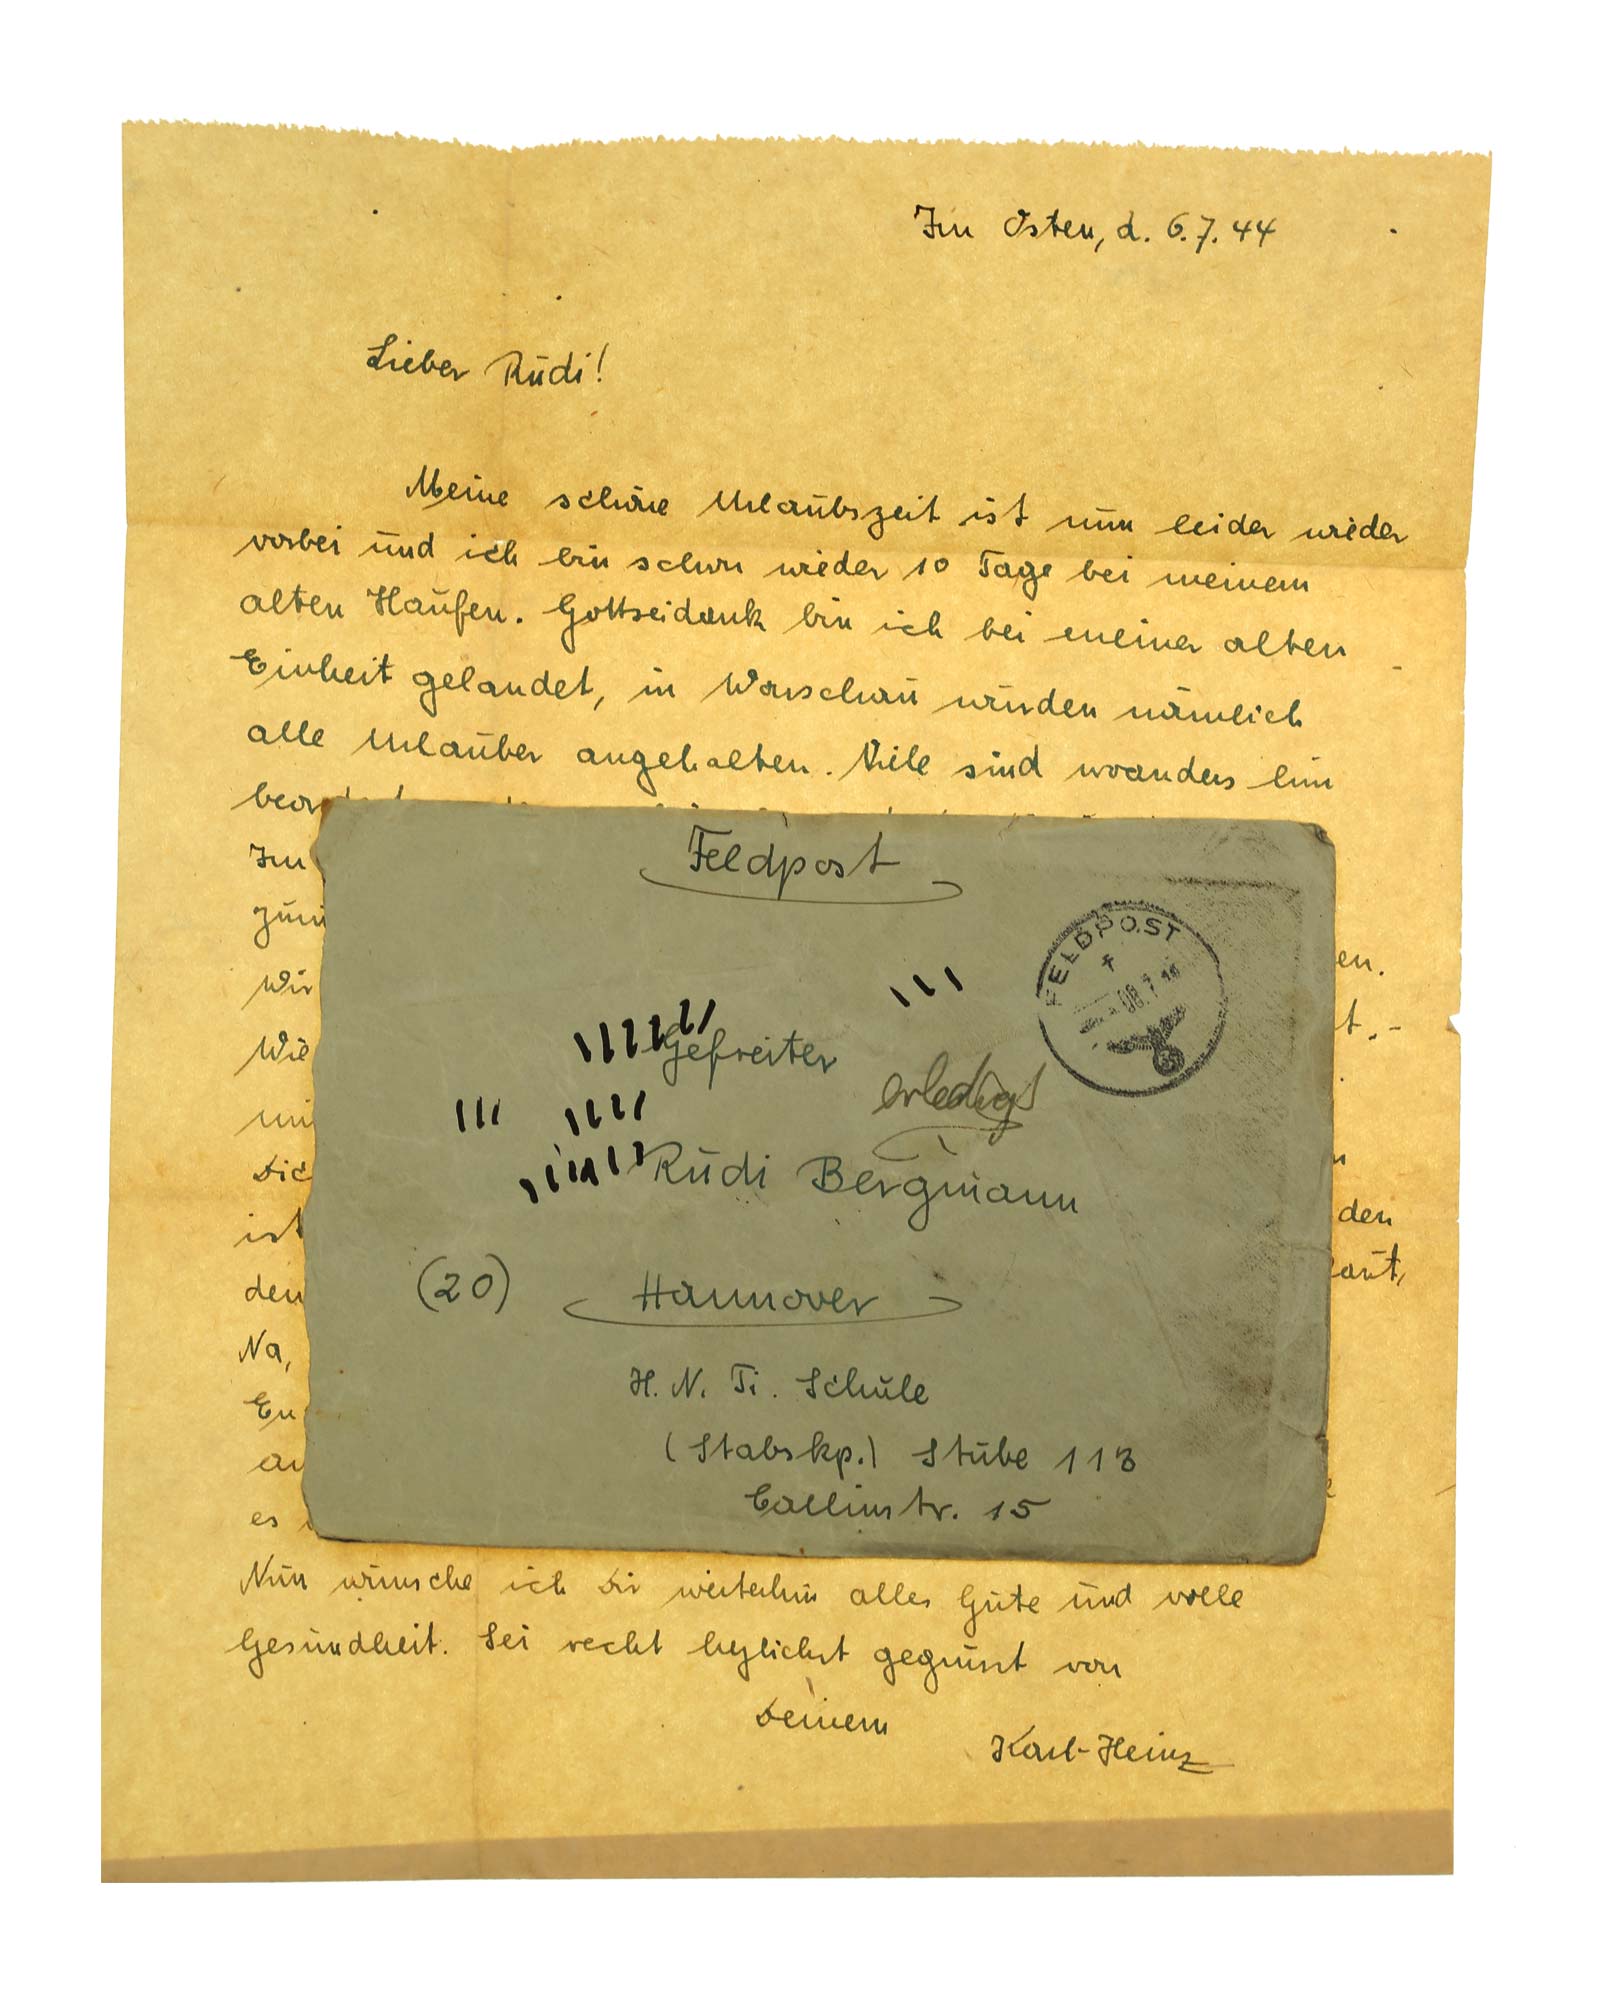 Im Osten, d. 6.7.44
Lieber Rudi!
Meine schöne Urlaubszeit ist nun leider wieder
vorbei und ich bin schon wieder 10 Tage bei meinem
alten Haufen. Gottseidank bin ich bei meiner alten
Einheit gelandet, in Warschau wurden nämlich
alle Urlauber angehalten. Viele sind woanders hin
beor
Im
zum
Wir
en.
Wie
t.-
mi
Dic
ist
den
den
aut,
Na,
En
au
es
Nun wünsche ich Dir weiterhin alles Gute und volle
Gesundheit. Sei recht herzlichst gegrüsst von
Deinem
Karl-Heinz
Feldpost
FELDPOST
Gefreiter
erledigt
Rudi Bergmann
(20) Hannover
H. N. Ti. Schule
(Stabskp.) Stube 113
Callinstr. 15